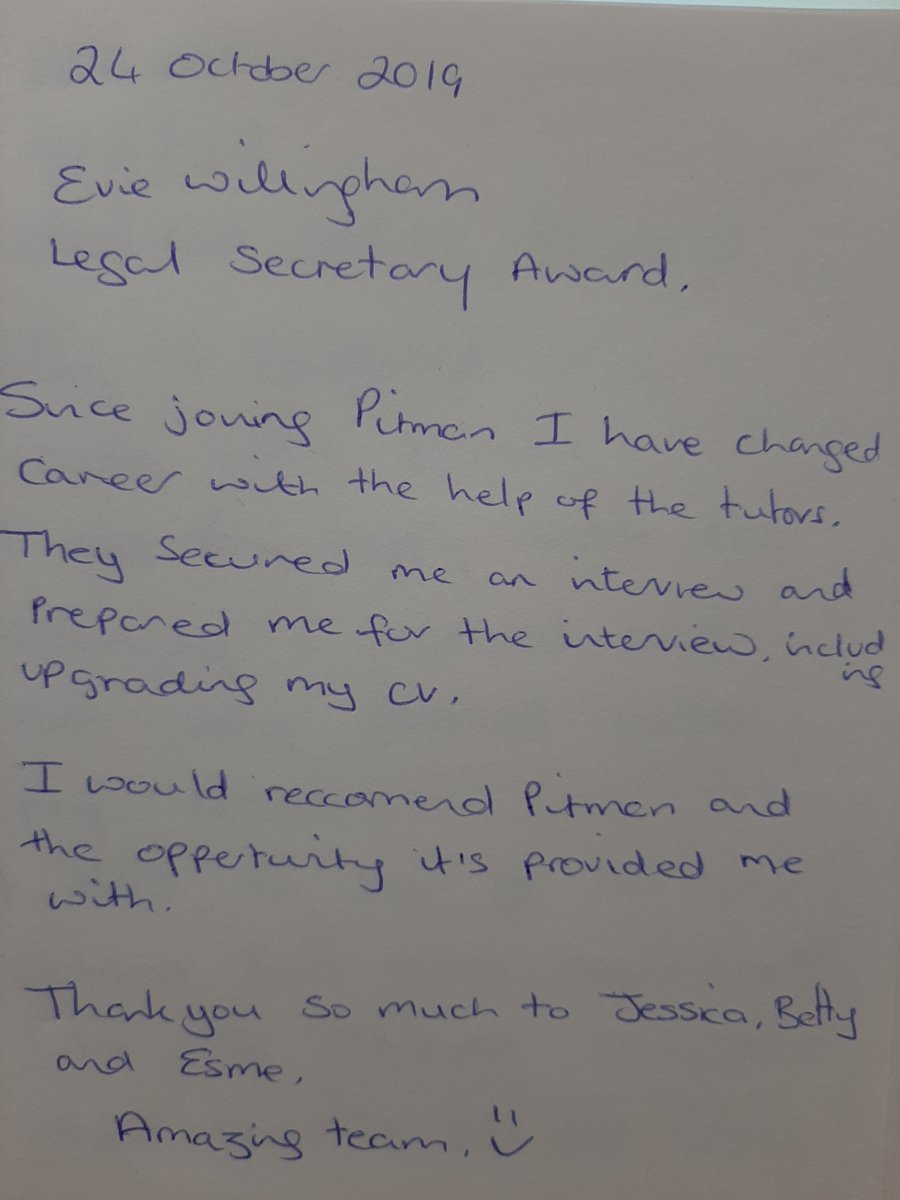 24 October 2019
Evie Willingham
Legal Secretary Award.
Since joining Pitman I have changed
career with the help of the tutors.
They secured me an interview and
prepared me for the interview, includ
ing
upgrading my cv.
I would reccomend Pitman and
the oppertunity it's provided me
with.
Thank you so much to Jessica, Betty
and Esme.
Amazing team. :)